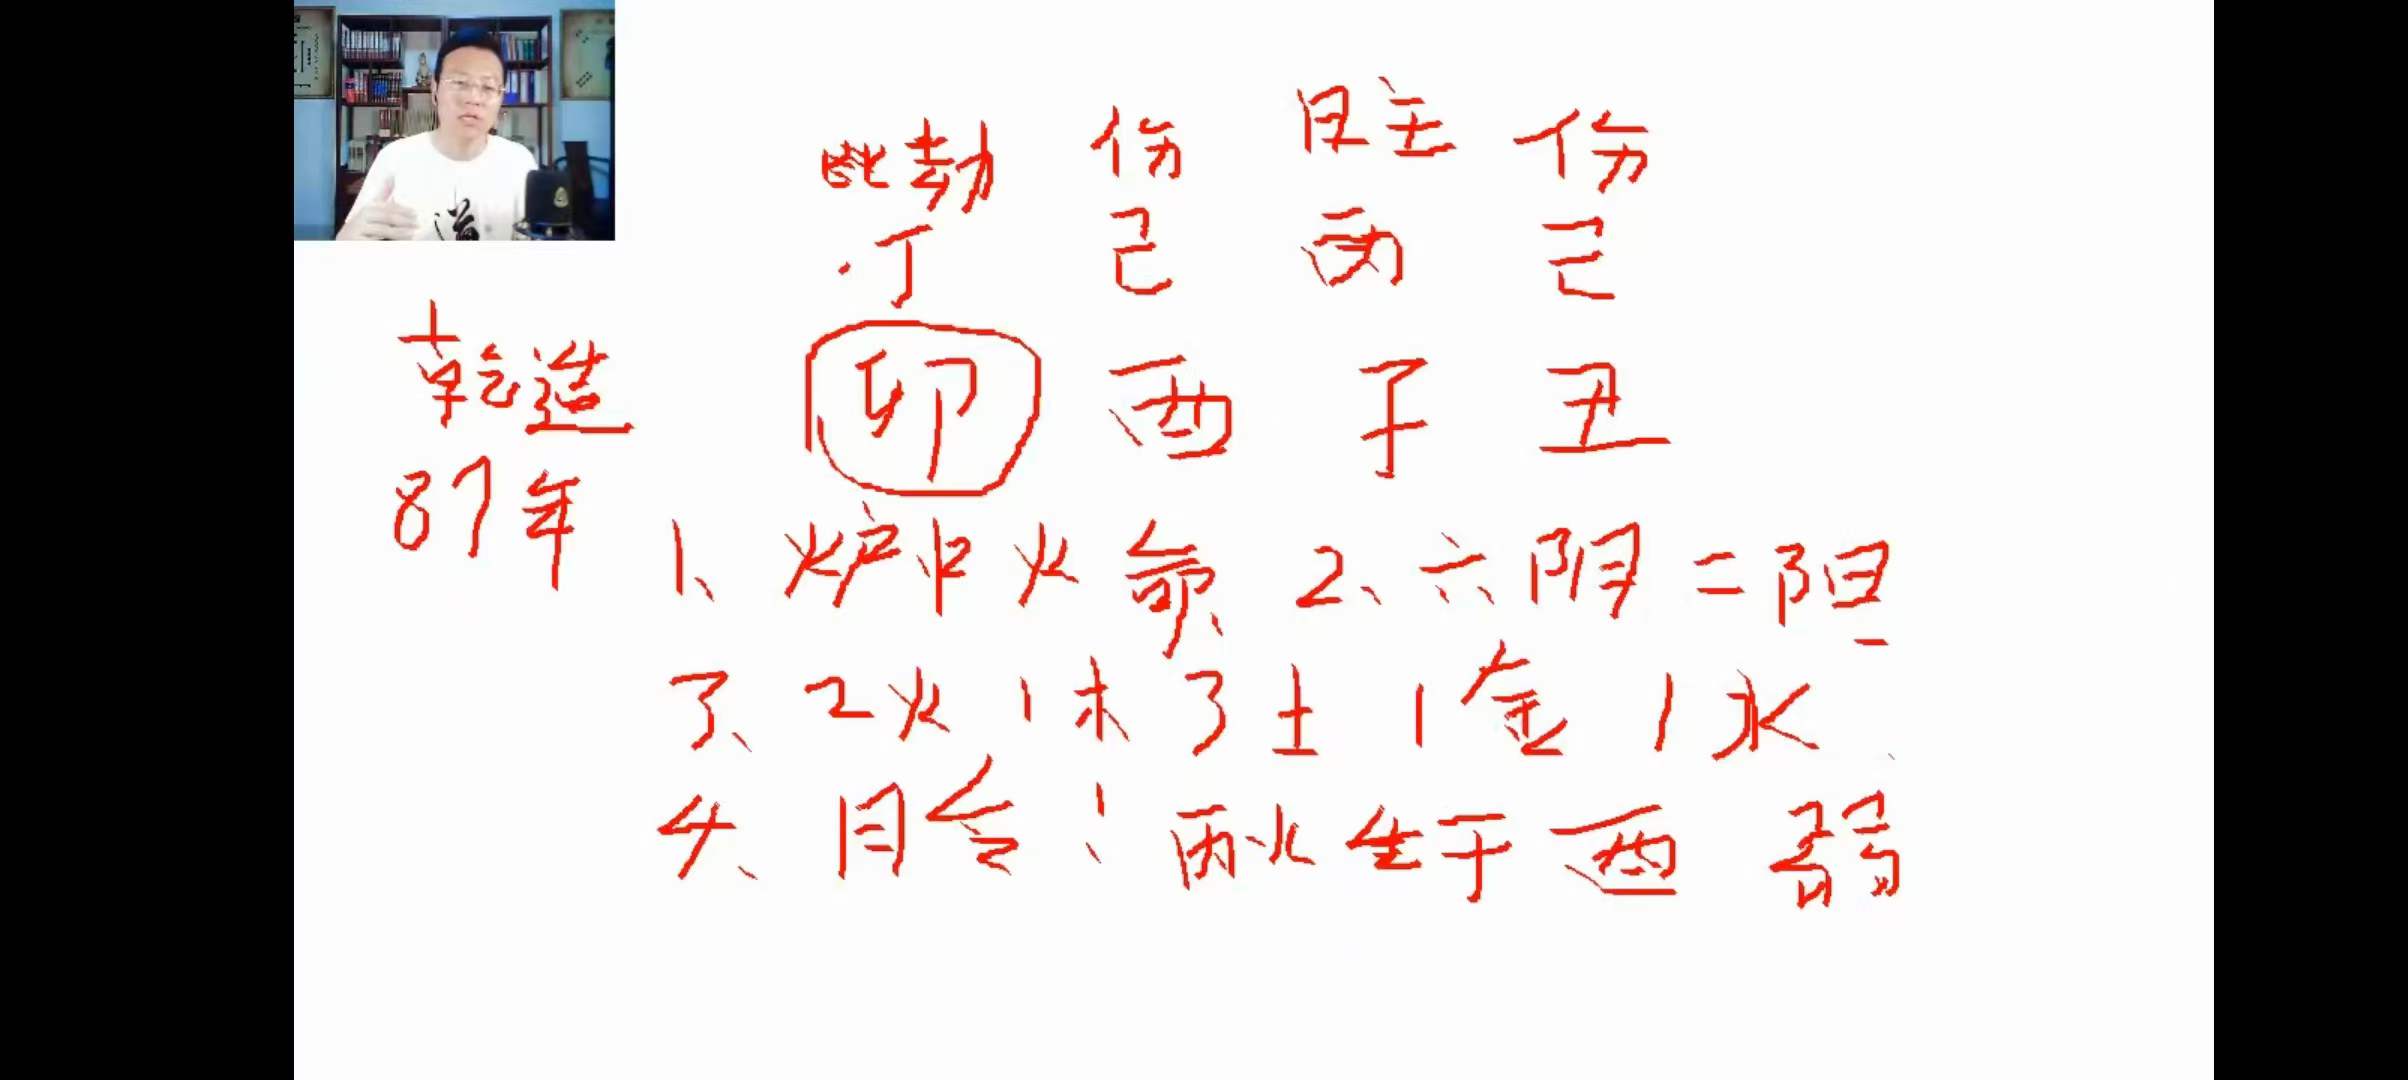 比劫 伤 日主 伤
丁 己 丙 己
乾造 卯 酉 子 丑
87年
1、炉中火命 2、六阴二阳
3、2火1木3土1金1水
4、月令:丙火生于酉 弱
道